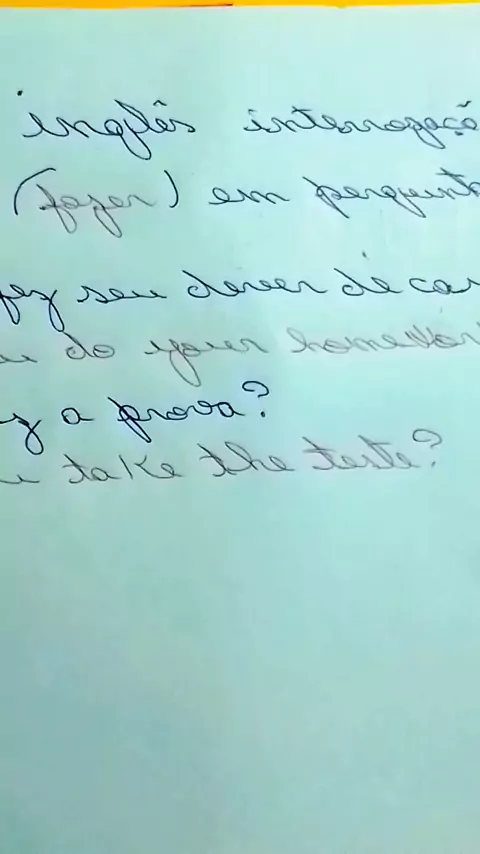 inglês interrogaçã
(fazer) em pergunt
fez seu dever de cas
u do your homewor
z a prova?
u take the teste?